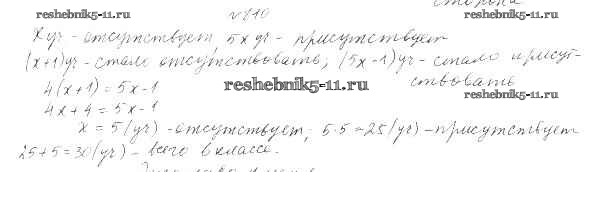 сторона
reshebnik5-11.ru № 810 reshebnik5-11.ru
x уч - отсутствует, 5x уч - присутствует
(x+1) уч - стало отсутствовать, (5x-1) уч - стало присутствовать
4(x+1) = 5x-1
reshebnik5-11.ru
reshebnik5-11.ru
4x+4 = 5x-1
x = 5 (уч) - отсутствует, 5·5=25 (уч) - присутствует
25+5=30 (уч) - всего в классе.